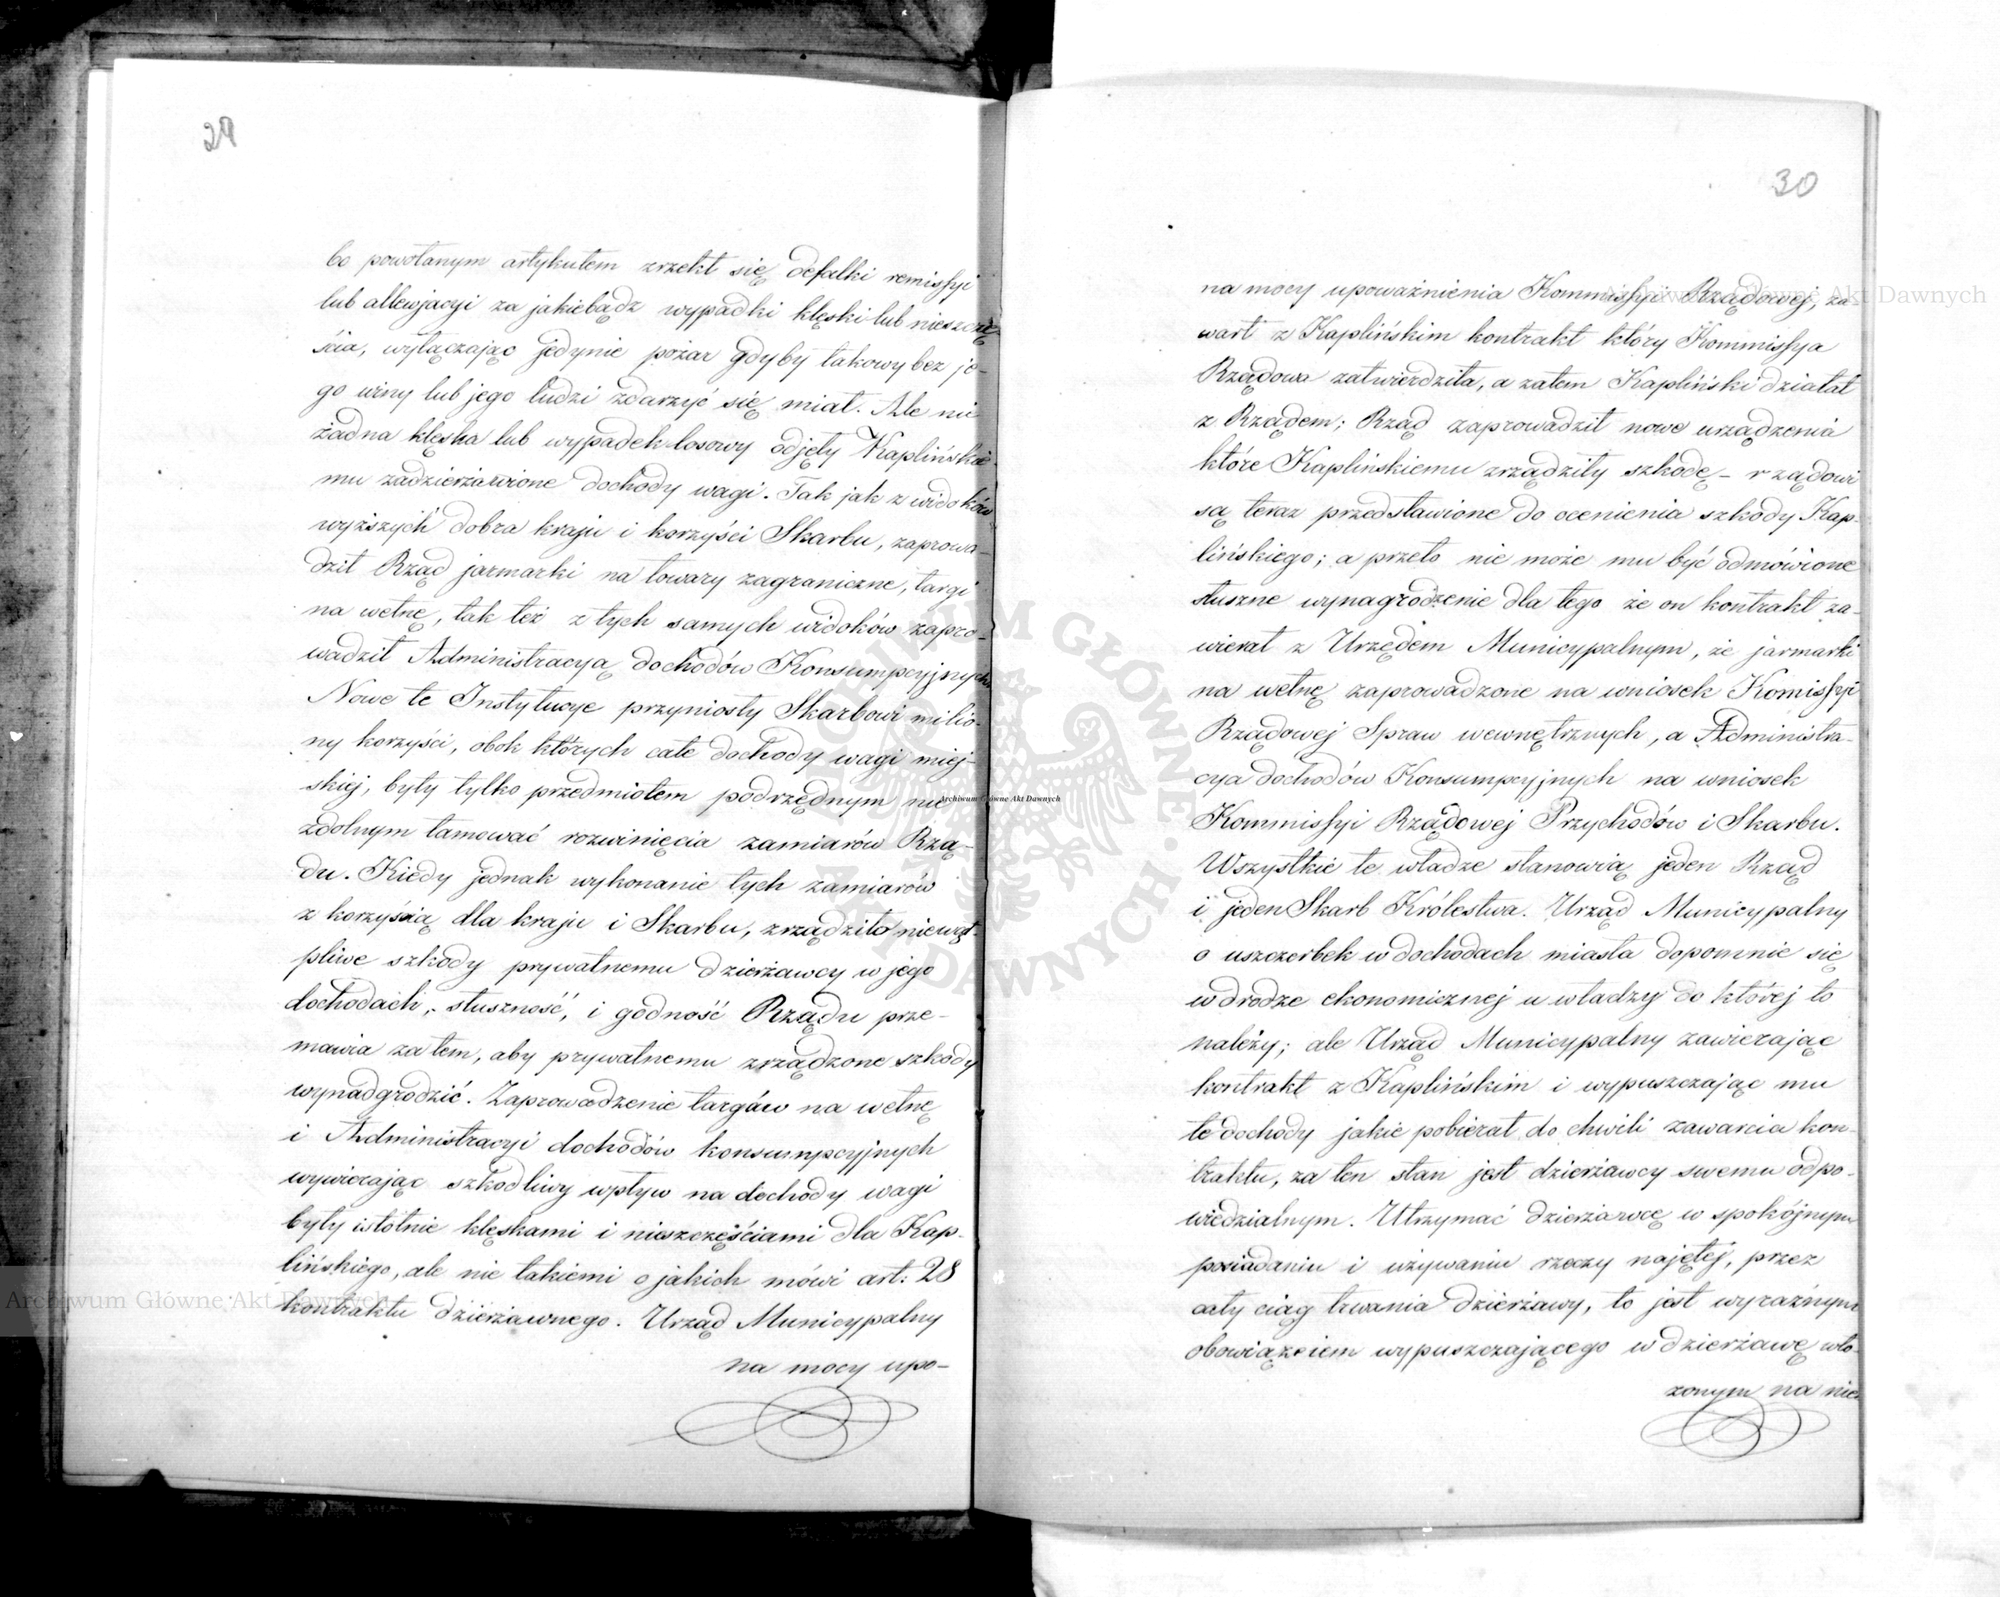 29
bo powołanym artykułem zrzekł się defalki remissyi
lub allewjacyi za jakiebądź wypadki klęski lub nieszczę
ścia, wyłączając jedynie pożar gdyby takowy bez je-
go winy lub jego ludzi zdarzyć się miał. Ale nie
żadna klęska lub wypadek losowy odjęły Kaplińskie-
mu zadzierżawione dochody wagi. Tak jak z widoków
wyższych dobra kraju i korzyści Skarbu, zaprowa-
dził Rząd jarmarki na towary zagraniczne, targi
na wełnę, tak też z tych samych widoków zapro-
wadził Administracyą dochodów Konsumpcyjnych.
Nowe te Instytucye przyniosły Skarbowi milio-
ny korzyści, obok których całe dochody wagi miej-
skiej, były tylko przedmiotem podrzędnym nie
zdolnym tamować rozwinięcia zamiarów Rzą-
du. Kiedy jednak wykonanie tych zamiarów
z korzyścią dla kraju i Skarbu, zrządziło niewąt-
pliwe szkody prywatnemu dzierżawcy w jego
dochodach, słuszność, i godność Rządu prze-
mawia zatem, aby prywatnemu zrządzone szkody
wynadgrodzić. Zaprowadzenie targów na wełnę
i Administracyi dochodów konsumpcyjnych
wywierając szkodliwy wpływ na dochody wagi
były istotnie klęskami i nieszczęściami dla Kap-
lińskiego, ale nie takiemi o jakich mówi art: 28
kontraktu dzierżawnego. Urząd Municypalny
na mocy upo-
30
na mocy upoważnienia Kommissyi Rządowej, za-
wart z Kaplińskim kontrakt który Kommissya
Rządowa zatwierdziła, a zatem Kapliński działał
z Rządem; Rząd zaprowadził nowe urządzenia
które Kaplińskiemu zrządziły szkodę – rządowi
są teraz przedstawione do ocenienia szkody Kap-
lińskiego; a przeto nie może mu być odmówione
słuszne wynagrodzenie dla tego że on kontrakt za-
wierał z Urzędem Municypalnym, że jarmarki
na wełnę zaprowadzone na wniosek Komissyi
Rządowej Spraw wewnętrznych, a Administra-
cya dochodów Konsumpcyjnych na wniosek
Kommissyi Rządowej Przychodów i Skarbu.
Wszystkie te władze stanowią jeden Rząd
i jeden Skarb Królestwa. Urząd Municypalny
o uszczerbek w dochodach miasta dopomnie się
w drodze ekonomicznej u władzy do której to
należy; ale Urząd Municypalny zawierając
kontrakt z Kaplińskim i wypuszczając mu
te dochody jakie pobierał do chwili zawarcia kon-
traktu, za ten stan jest dzierżawcy swemu odpo-
wiedzialnym. Utrzymać dzierżawcę w spokójnym
posiadaniu i używaniu rzeczy najętej, przez
cały ciąg trwania dzierżawy, to jest wyraźnym
obowiązkiem wypuszczającego w dzierżawę wło-
żonym na nie-
Archiwum Główne Akt Dawnych
Archiwum Główne Akt Dawnych
Archiwum Główne Akt Dawnych
ARCHIWUM GŁÓWNE AKT DAWNYCH